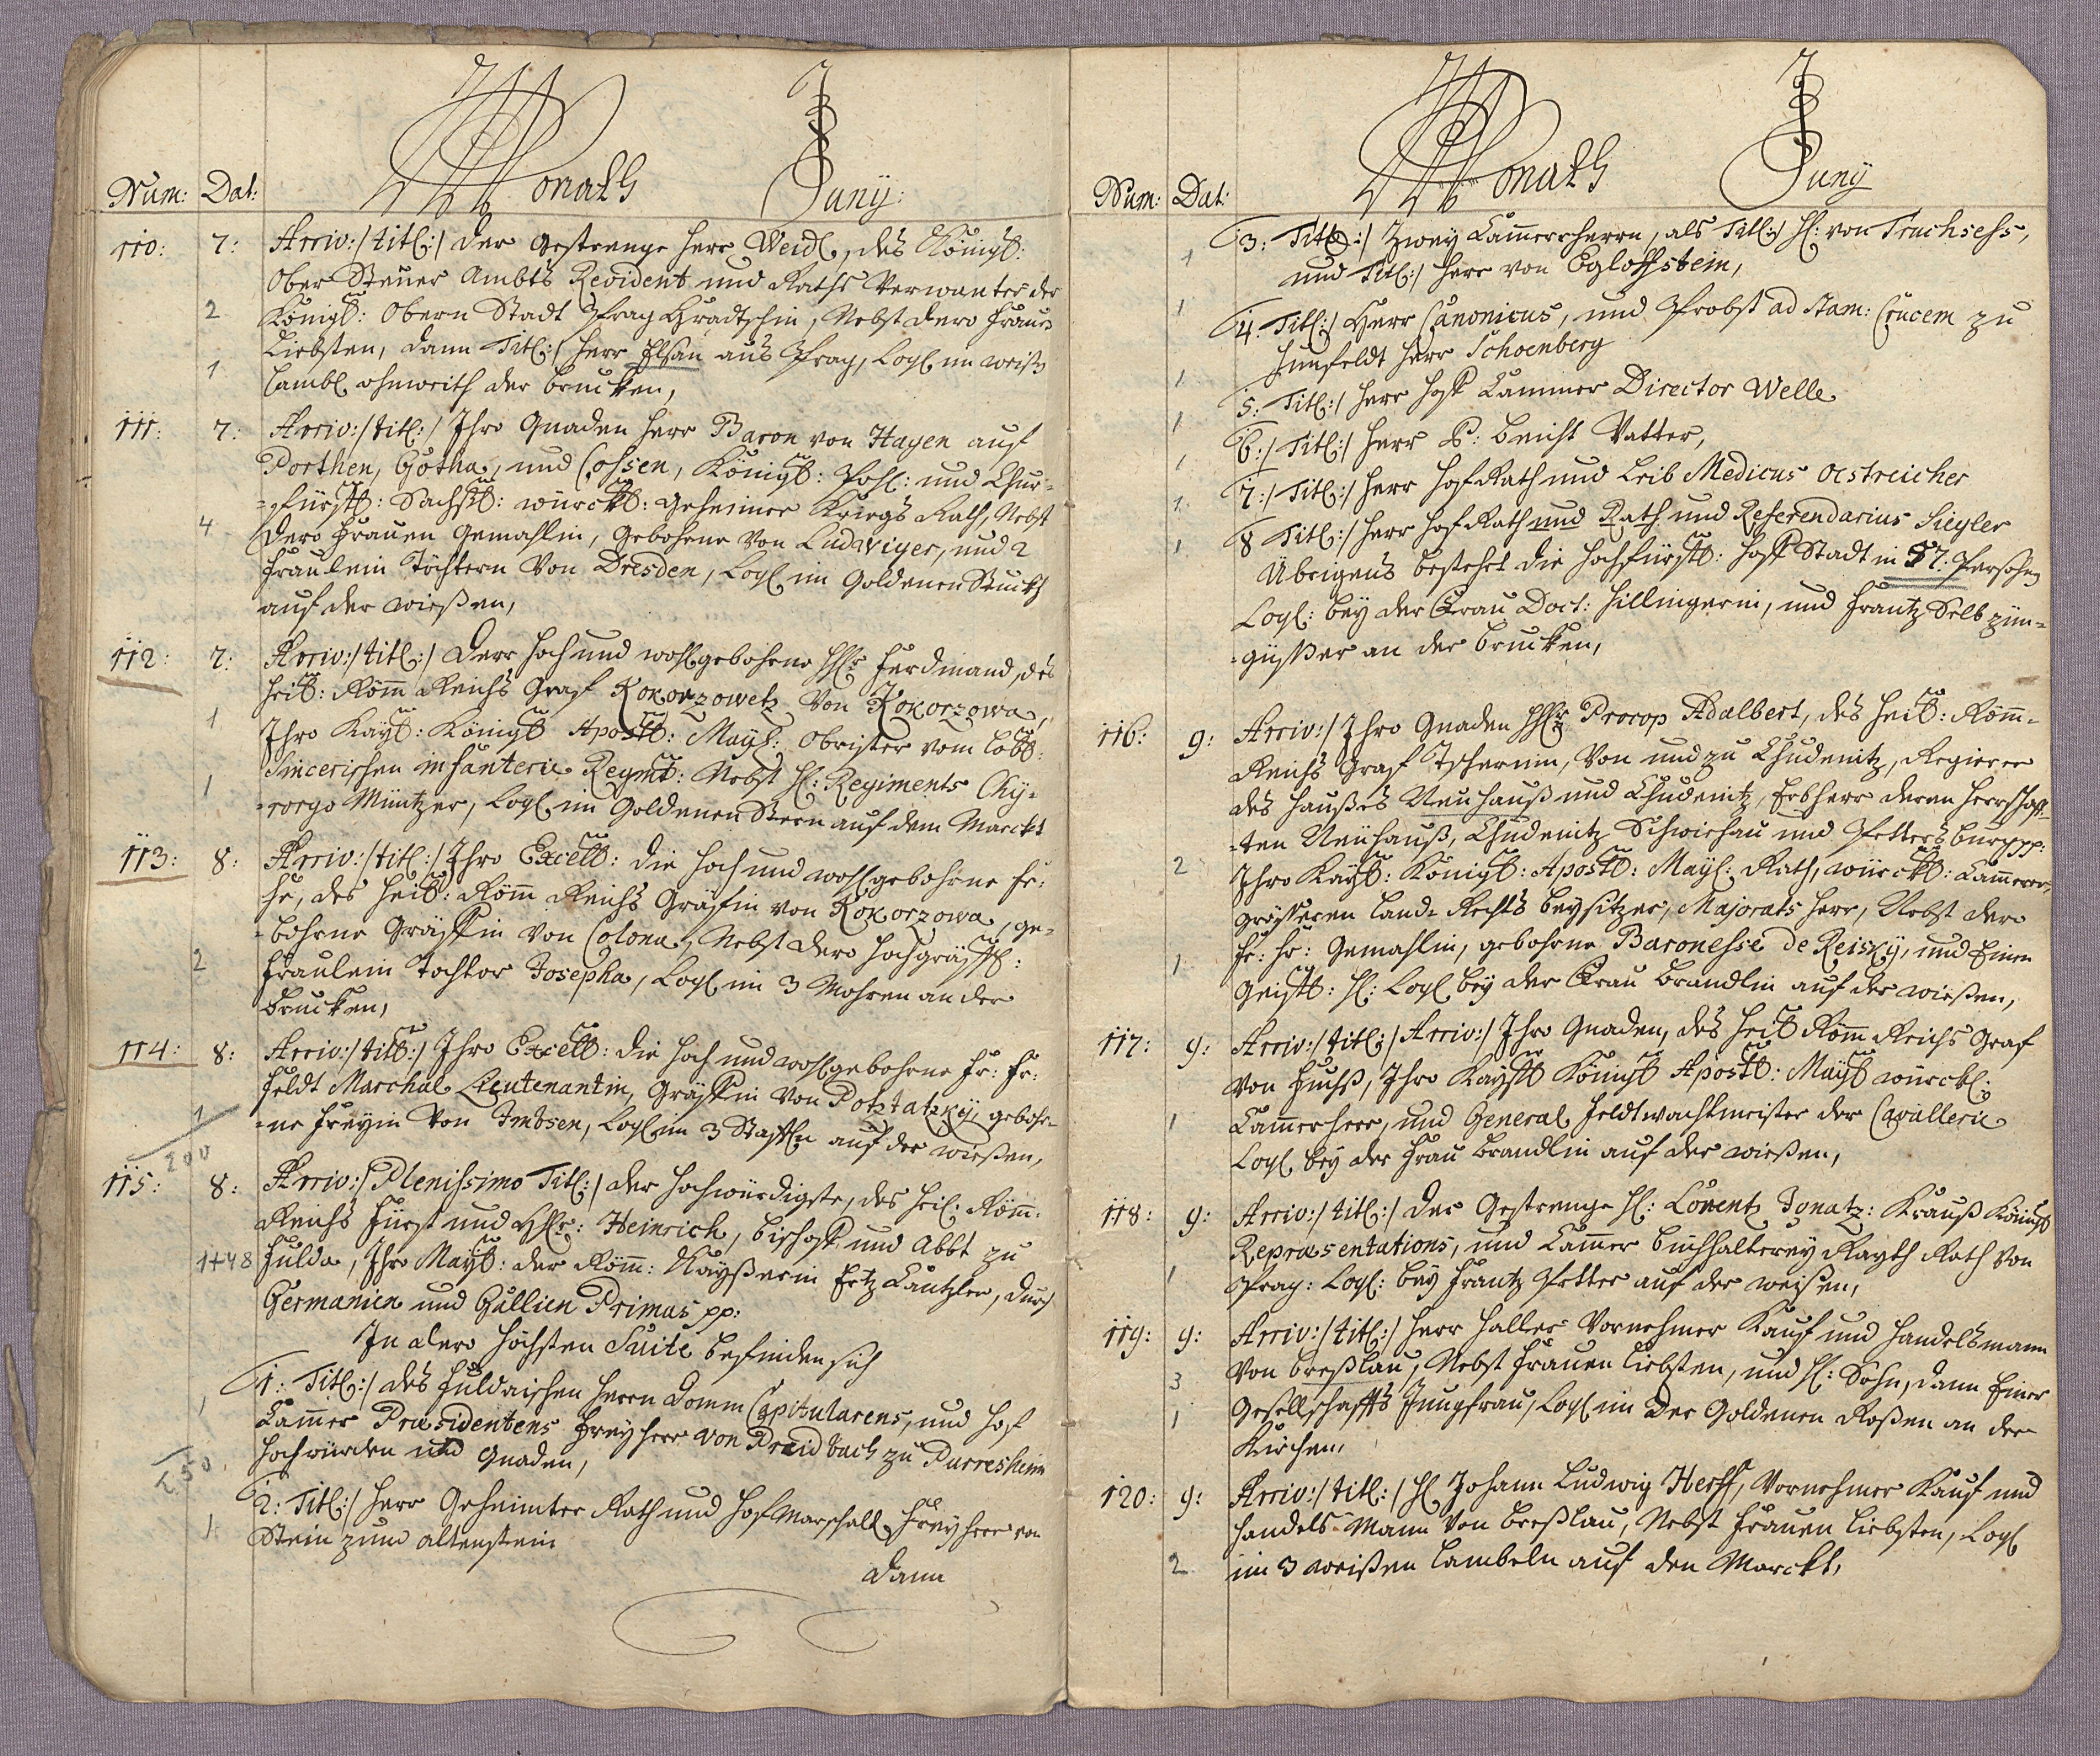 Num: Dat: Monath Juny:
110: 7: Arriv:/ titl:/ der Gestrenge Herr Weidl, des Königl:
Ober Steuer Ambts Revident und Raths Verwanter der
2 Königl: Obern Stadt Prag Hradtschin, Nebst dero Frauen
Liebsten, dann Titl:/ Herr Elsan aus Prag, Logl im weiß
1 Lambl ohnweith der brucken,
111: 7: Arriv:/ titl:/ Ihro Gnaden Herr Baron von Hagen auf
Porthen, Gotha, und Cossen, Königl: Pohl: und Chur-
-fürstl: Sächsl: würckl: Geheimer Kriegs Rath, Nebst
4 dero Frauen Gemahlin, Gebohrne Von Ludwiger, und 2
Fraulein Töchtern Von Dresden, Logl im Goldenen Stuckh
auf der wießen,
112: 7: Arriv:/ titl:/ Derr Hoch und wohlgebohrne HHr Ferdinand, des
Heil: Römm Reichs Graf Kokorzowetz Von Kokorzowa,
1 Ihro Kayl: Königl Apostl: Mayl: Obrister vom löbl:
Sincerischen infanterie Regmt: Nebst H: Regiments Chy-
1 -rorgo Müntzer, Logl im Goldenen Stern auf dem Marckt
113: 8: Arriv:/ titl:/ Ihro Excell: die Hoch und wohlgebohrne Fr:
Fr, des Heil: Römm Reichs Gräfin von Kokorzowa, ge-
-bohrne Gräffin von Colona, Nebst dero Hochgräffl:
2 Fräulein Tochter Josepha, Logl im 3 Mohren an der
brucken,
114: 8: Arriv:/ titl:/ Ihro Excell: die Hoch und wohlgebohrne Fr: Fr:
Feldt Marchal Lieutenantin, Gräffin Von Potztatzky, gebohr-
1 -ne Freyin Von Imbsen, Logl im 3 Staffln auf der wießen,
200
115: 8: Arriv:/ Plenissimo Titl:/ der Hochwürdigste, des Heil: Römm:
Reichs Fürst und HHr: Heinrich, Bischoff und Abbt zu
1+48 Fulda, Ihro Mayl: der Römm: Kaÿßerin Ertz Cantzler, durch
Germanien und Gallien Primas pp:
In dero Höchsten Suite befinden sich
1 1: Titl:/ des Fuldaischen Herrn Domm Capitularens, und Hof
Cammer Præsidentens Freyherr von Breidbach zu Burresheim
Hochwürden und Gnaden,
250
2: Titl:/ Herr Geheimter Rath und Hof Marschall Freyherr von
1 Stein zum altenstein
dann
Num: Dat: Monath Juny
3: Titl:/ Zwey Cammerherrn, als Titl:/ H: von Truchsess,
1 und Titl:/ Herr von Egloffstein,
1 4: Titl:/ Herr Canonicus, und Probst ad Stam: Crucem zu
Hunfeldt Herr Schoenberg
1 5: Titl:/ Herr Hoff Cammer Director Welle
1 6:/ Titl:/ Herr P: Beicht Vatter,
1 7:/ Titl:/ Herr Hof Rath und Leib Medicus Oestreicher
1 8 Titl:/ Herr Hof Rath und Rath und Referendarius Siegler
1 Übrigens bestehet die Hochfürstl: Hoff Stadt in 57. Persohn
Logl: bey der Frau Doct: Hillingerin, und Frantz Selb zün-
-güßer an der brucken,
116: 9: Arriv:/ Ihro Gnaden HHr Procop Adalbert, des Heil: Römm-
Reichs Graf Tschernin, Von und zu Chudenitz, Regierer
des Haußes Neuhauß und Chudenitz, Erbherr deren Herrschaff-
-ten Neuhauß, Chudenitz Schwirhau und Pettersburg pp:
2 Ihro Kayl: Königl: Apostl: Mayl: Rath, würckl: Cammerer,
größeren Land-Rechts beysitzer, Majorats Herr, Nebst der
Fr: Fr: Gemahlin, gebohrne Baronesse de Reisky, und Einen
1 Geistl: H: Logl bey der Frau Brandlin auf der wießen,
117: 9: Arriv:/ titl:/ Arriv:/ Ihro Gnaden, des Heil Römm Reichs Graf
Von Fuchß, Ihro Kayl Königl Apostl: Mayl würckl:
1 Cammerherr, und General Feldtwachtmeister der Cavallerie
Logl bey der Frau Brandlin auf der wießen,
118: 9: Arriv:/ titl:/ Der Gestrenge H: Lorentz Ignatz: Krauß Königl
Repræsentations, und Cammer Buchhalterey Rayth Rath Von
1 Prag: Logl: bey Frantz Petter auf der weißen,
119: 9: Arriv:/ titl:/ Herr Haller Vornehmer Kauf und Handelsmann
3 Von Breßlau, Nebst Frauen Liebsten, und H: Sohn, dann Einer
1 Gesellschaffts Jungfrau, Logl im Der Goldenen Roßen an der
Kirchen,
120: 9: Arriv:/ titl:/ H Johann Ludwig Herff, Vornehmer Kauf und
Handels Mann Von Breßlau, Nebst Frauen Liebsten, Logl
2 im 3 weißen Lambeln auf den Marckt,